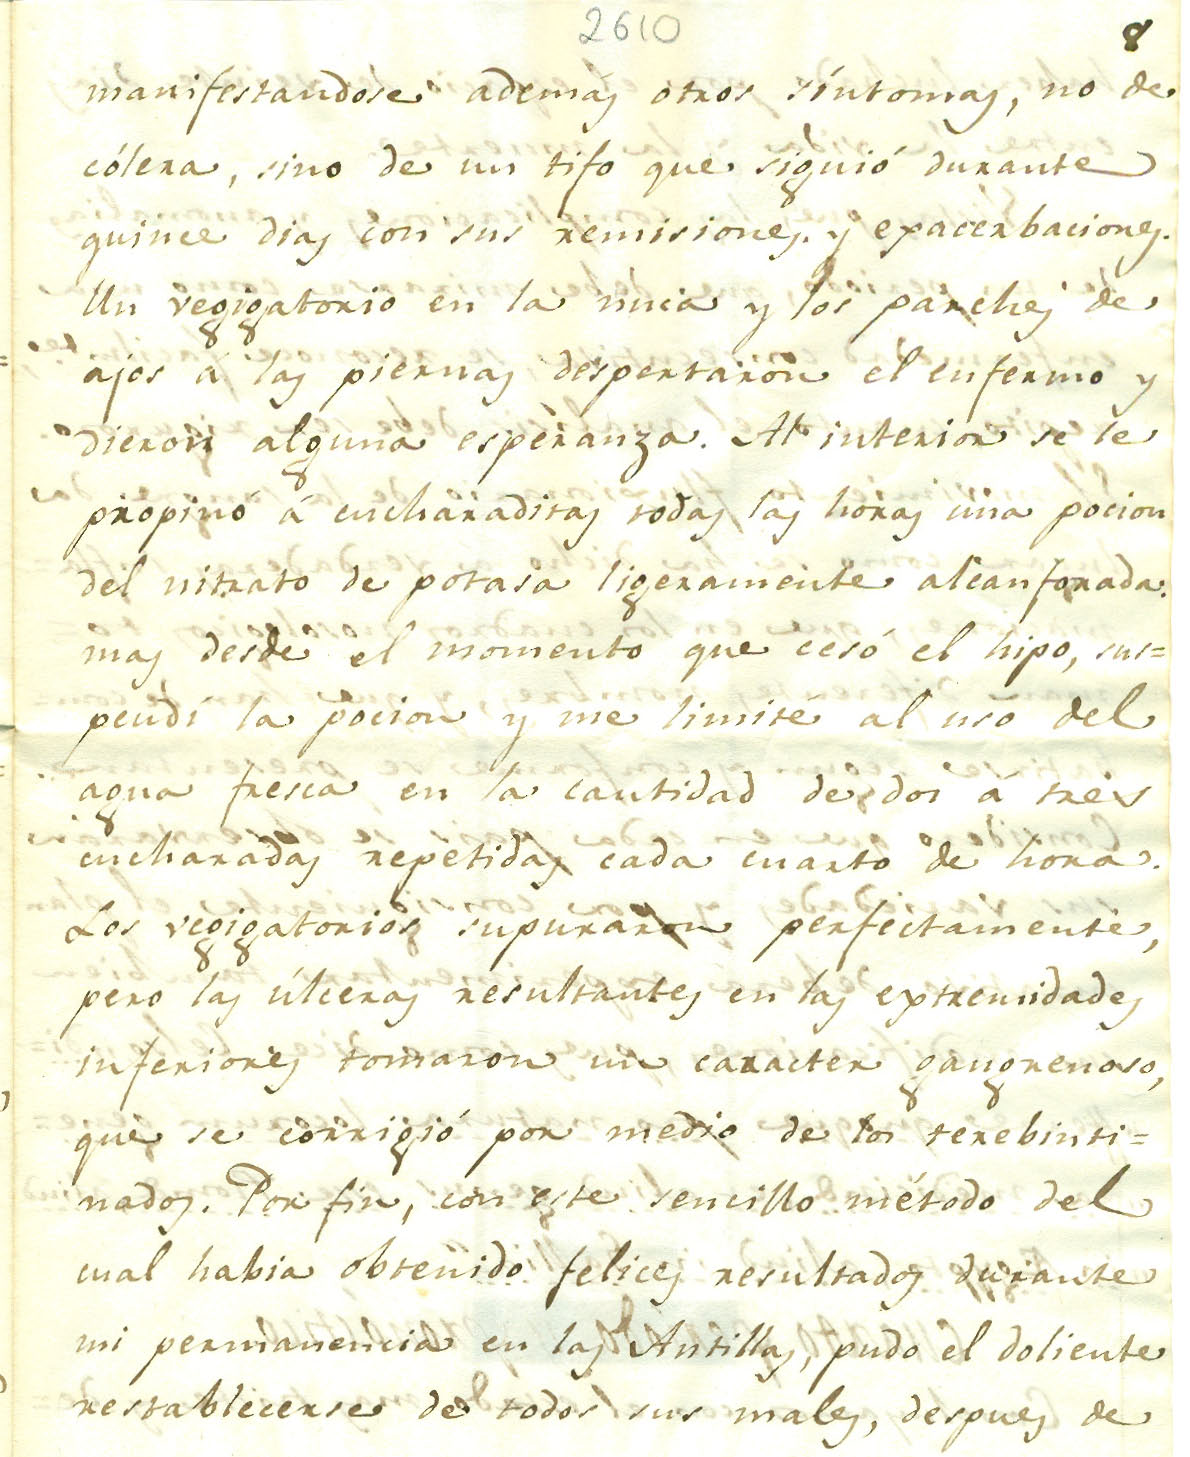 2610
8
manifestandose ademas otros síntomas, no de
cólera, sino de un tifo que siguió durante
quince dias con sus remisiones y exacerbaciones.
Un vegigatorio en la nuca y los parches de
ajos á las piernas despertaron el enfermo y
dieron alguna esperanza. Al interior se le
propinó á cucharaditas todas las horas una pocion
del nitrato de potasa ligeramente alcanforada.
mas desde el momento que cesó el hipo, sus=
pendí la pocion y me limité al uso del
agua fresca en la cantidad de dos á tres
cucharadas repetidas cada cuarto de hora.
Los vegigatorios supuraron perfectamente,
pero las úlceras resultantes en las extremidades
inferiores tomaron un caracter gangrenoso,
que se corrigió por medio de los terebinti=
nados. Por fin, con este sencillo método del
cual habia obtenido felices resultados durante
mi permanencia en las Antillas, pudo el doliente
restablecerse de todos sus males, despues de